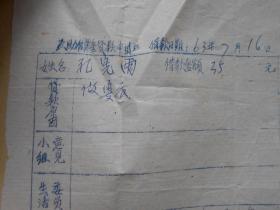 互助储金会贷款申请书 借款日期:63年7月16日
姓名 孔宪雨 借款金额 25 元
贷款原因 做夏衣
小组意见
生活委员